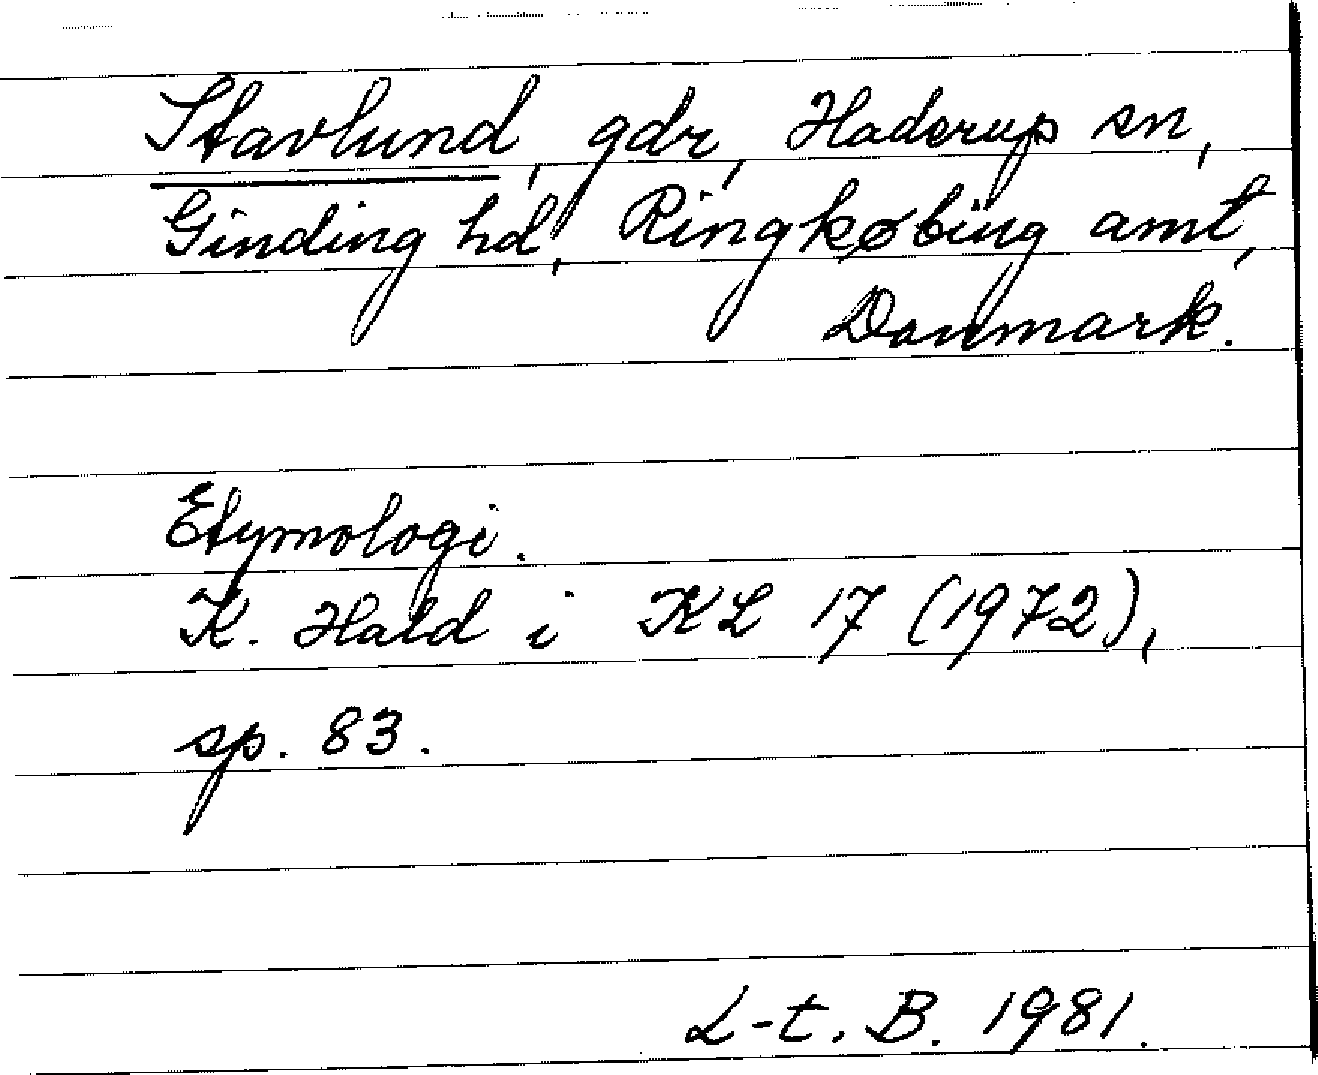 Stavlund, gdr, Haderup sn,
Ginding hd, Ringkøbing amt,
Danmark.
Etymologi.
K. Hald i KL 17 (1972),
sp. 83.
L-t. B. 1981.